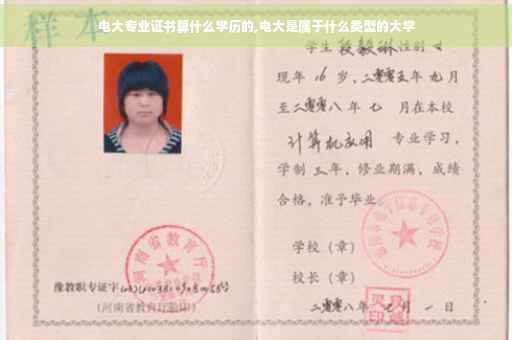 样本
电大专业证书算什么学历的,电大是属于什么类型的大学
学生段毅琳性别女
现年16岁，二零零五年九月
至二零零八年七月在本校
计算机应用 专业学习，
学制三年，修业期满，成绩
合格，准予毕业。
学校（章）
校长（章）
二零零八年 月一日
河南省教育厅
豫教职专证字
（河南省教育厅验印）